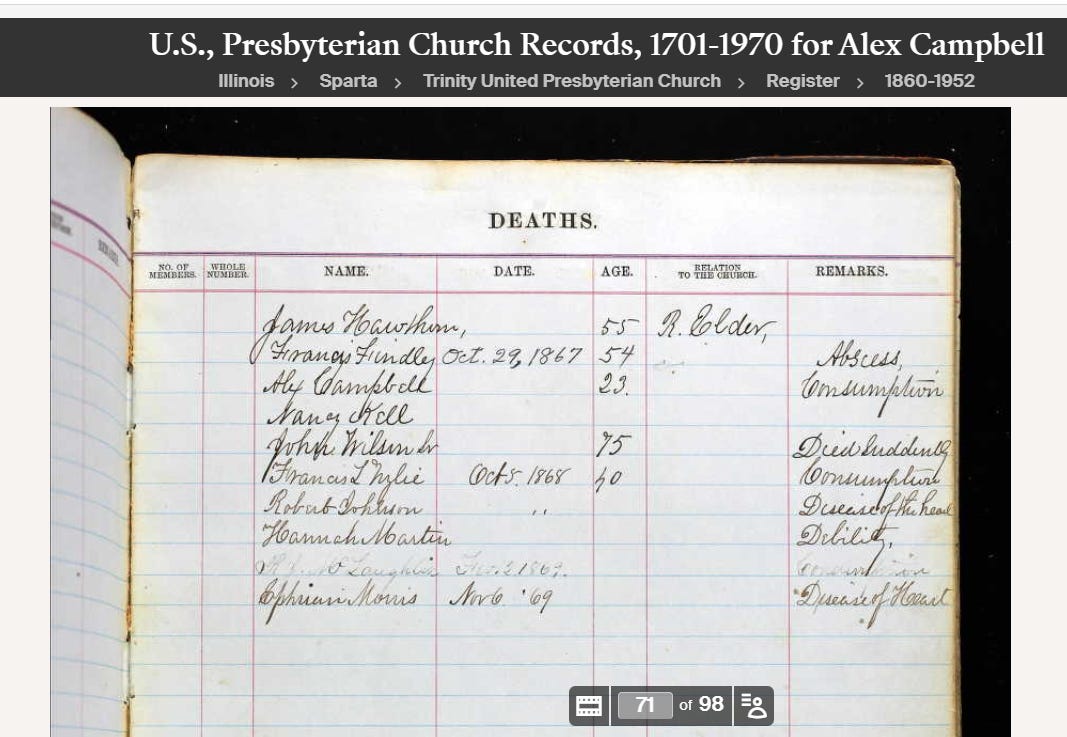 U.S., Presbyterian Church Records, 1701-1970 for Alex Campbell
Illinois > Sparta > Trinity United Presbyterian Church > Register > 1860-1952
DEATHS.
NO. OF MEMBERS. WHOLE NUMBER. NAME. DATE. AGE. RELATION TO THE CHURCH. REMARKS.
James Hawthorn, 55 R. Elder,
Francis Findley Oct. 29, 1867 54 Abscess,
Alex Campbell 23. Consumption
Nancy Kell
John Wilson Sr 75 Died Suddenly
Francis L Wylie Oct 5. 1868 40 Consumption
Robert Johnson " Disease of the head
Hannah Martin Debility,
McLaughlin 2 1869. Consumption
Ephriam Morris Nov 6 '69 Disease of Heart
71 of 98